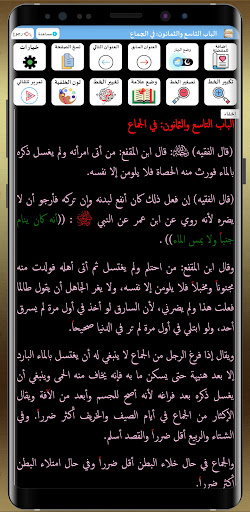 الباب التاسع والثمانون: في الجماع
مساعدة
رجوع
خيارات
نسخ الصفحة
العنوان التالي
العنوان السابق
وضع النهار
إضافة للمفضلة
تمرير تلقائي
لون الخلفية
تغيير الخط
وضع علامة
تصغير الخط
تكبير الخط
إخفاء
الباب التاسع والثمانون: في الجماع
(قال الفقيه) ﷺ: قال ابن المقفع: من أتى امرأته ولم يغسل ذكره
بالماء فورث منه الحصاة فلا يلومن إلا نفسه.
(قال الفقيه) إن فعل ذلك كان أنفع لبدنه وإن تركه فأرجو أن لا
يضره لأنه روي عن ابن عمر عن النبي ﷺ : ((أنه كان ينام
جنباً ولا يمس الماء)) .
وقال ابن المقفع: من احتلم ولم يغتسل ثم أتى أهله فولدت منه
مجنوناً ومخبلاً فلا يلومن إلا نفسه، ولا يغر الجاهل أن يقول طالما
فعلت هذا ولم يضرني، لأن السارق لو أخذ في أول مرة لم يسرق
أحد، ولو ابتلي في أول مرة لم تر في الدنيا صحيحاً.
ويقال إذا فرغ الرجل من الجماع لا ينبغي له أن يغتسل بالماء البارد
إلا بعد هنيهة حتى يسكن ما به فإنه يخاف منه الحمى وينبغي أن
يغسل ذكره بعد فراغه لأنه أصح للجسم وأبعد من الآفة ويقال
الإكثار من الجماع في أيام الصيف والخريف أكثر ضرراً. وفي
الشتاء والربيع أقل ضرراً والقصد أسلم.
والجماع في حال خلاء البطن أقل ضرراً وفي حال امتلاء البطن
أكثر ضرراً.